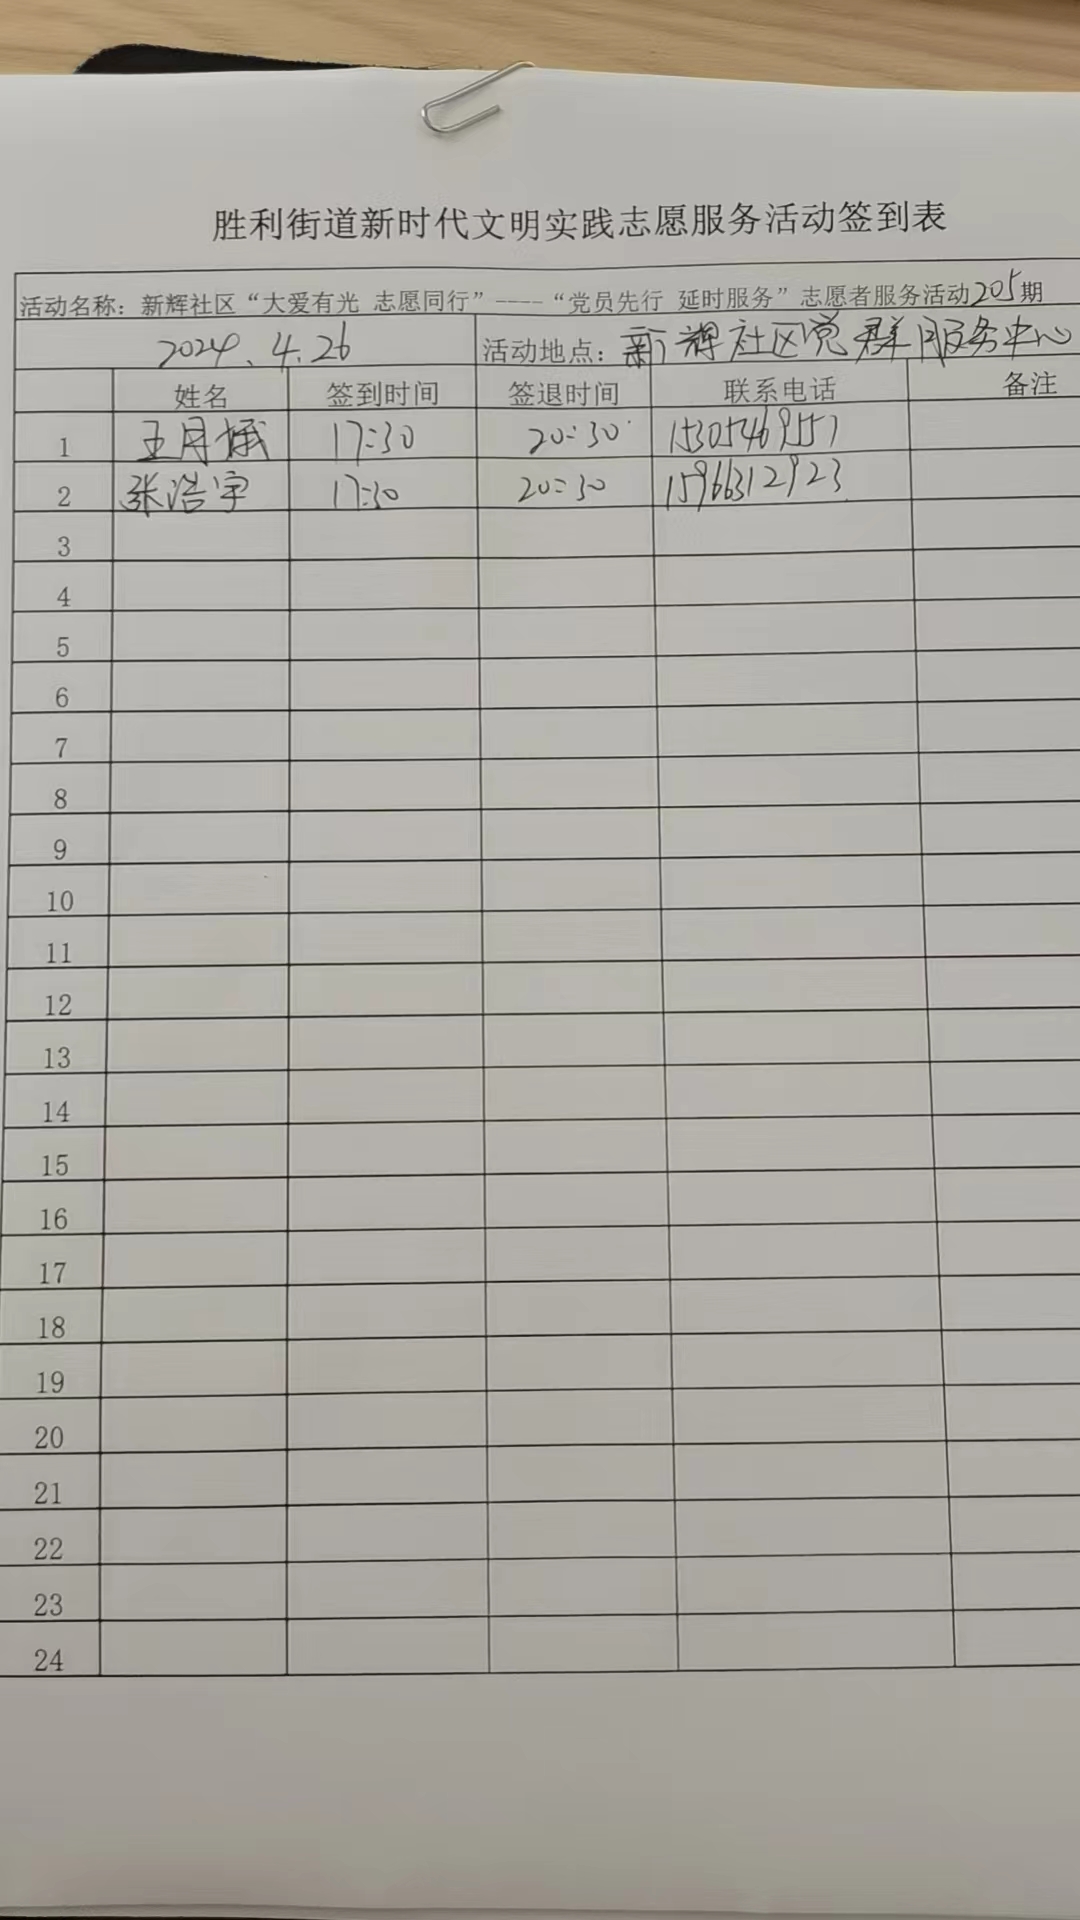 胜利街道新时代文明实践志愿服务活动签到表
活动名称：新辉社区“大爱有光 志愿同行”----“党员先行 延时服务”志愿者服务活动205期
2024.4.26 活动地点：新辉社区党群服务中心
姓名 签到时间 签退时间 联系电话 备注
1 王月娥 17:30 20:30 15305469557
2 张浩宇 17:30 20:30 15966312923
3
4
5
6
7
8
9
10
11
12
13
14
15
16
17
18
19
20
21
22
23
24